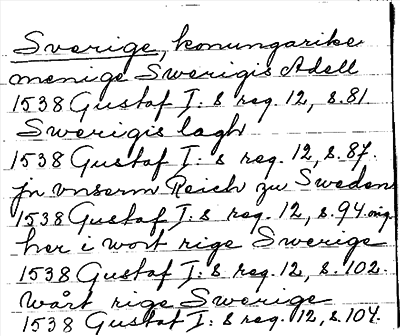 Sverige, konungarike
menige Swerigis Adell
1538 Gustaf I:s reg. 12, s.81.
Swerigis lagh
1538 Gustaf I:s reg. 12, s.87.
jn vnserm Reich zu Sweden
1538 Gustaf I:s reg. 12, s.94. orig
her i wort rige Swerige
1538 Gustaf I:s reg. 12, s.102.
wårt rige Swerige
1538 Gustaf I:s reg. 12, s.104.